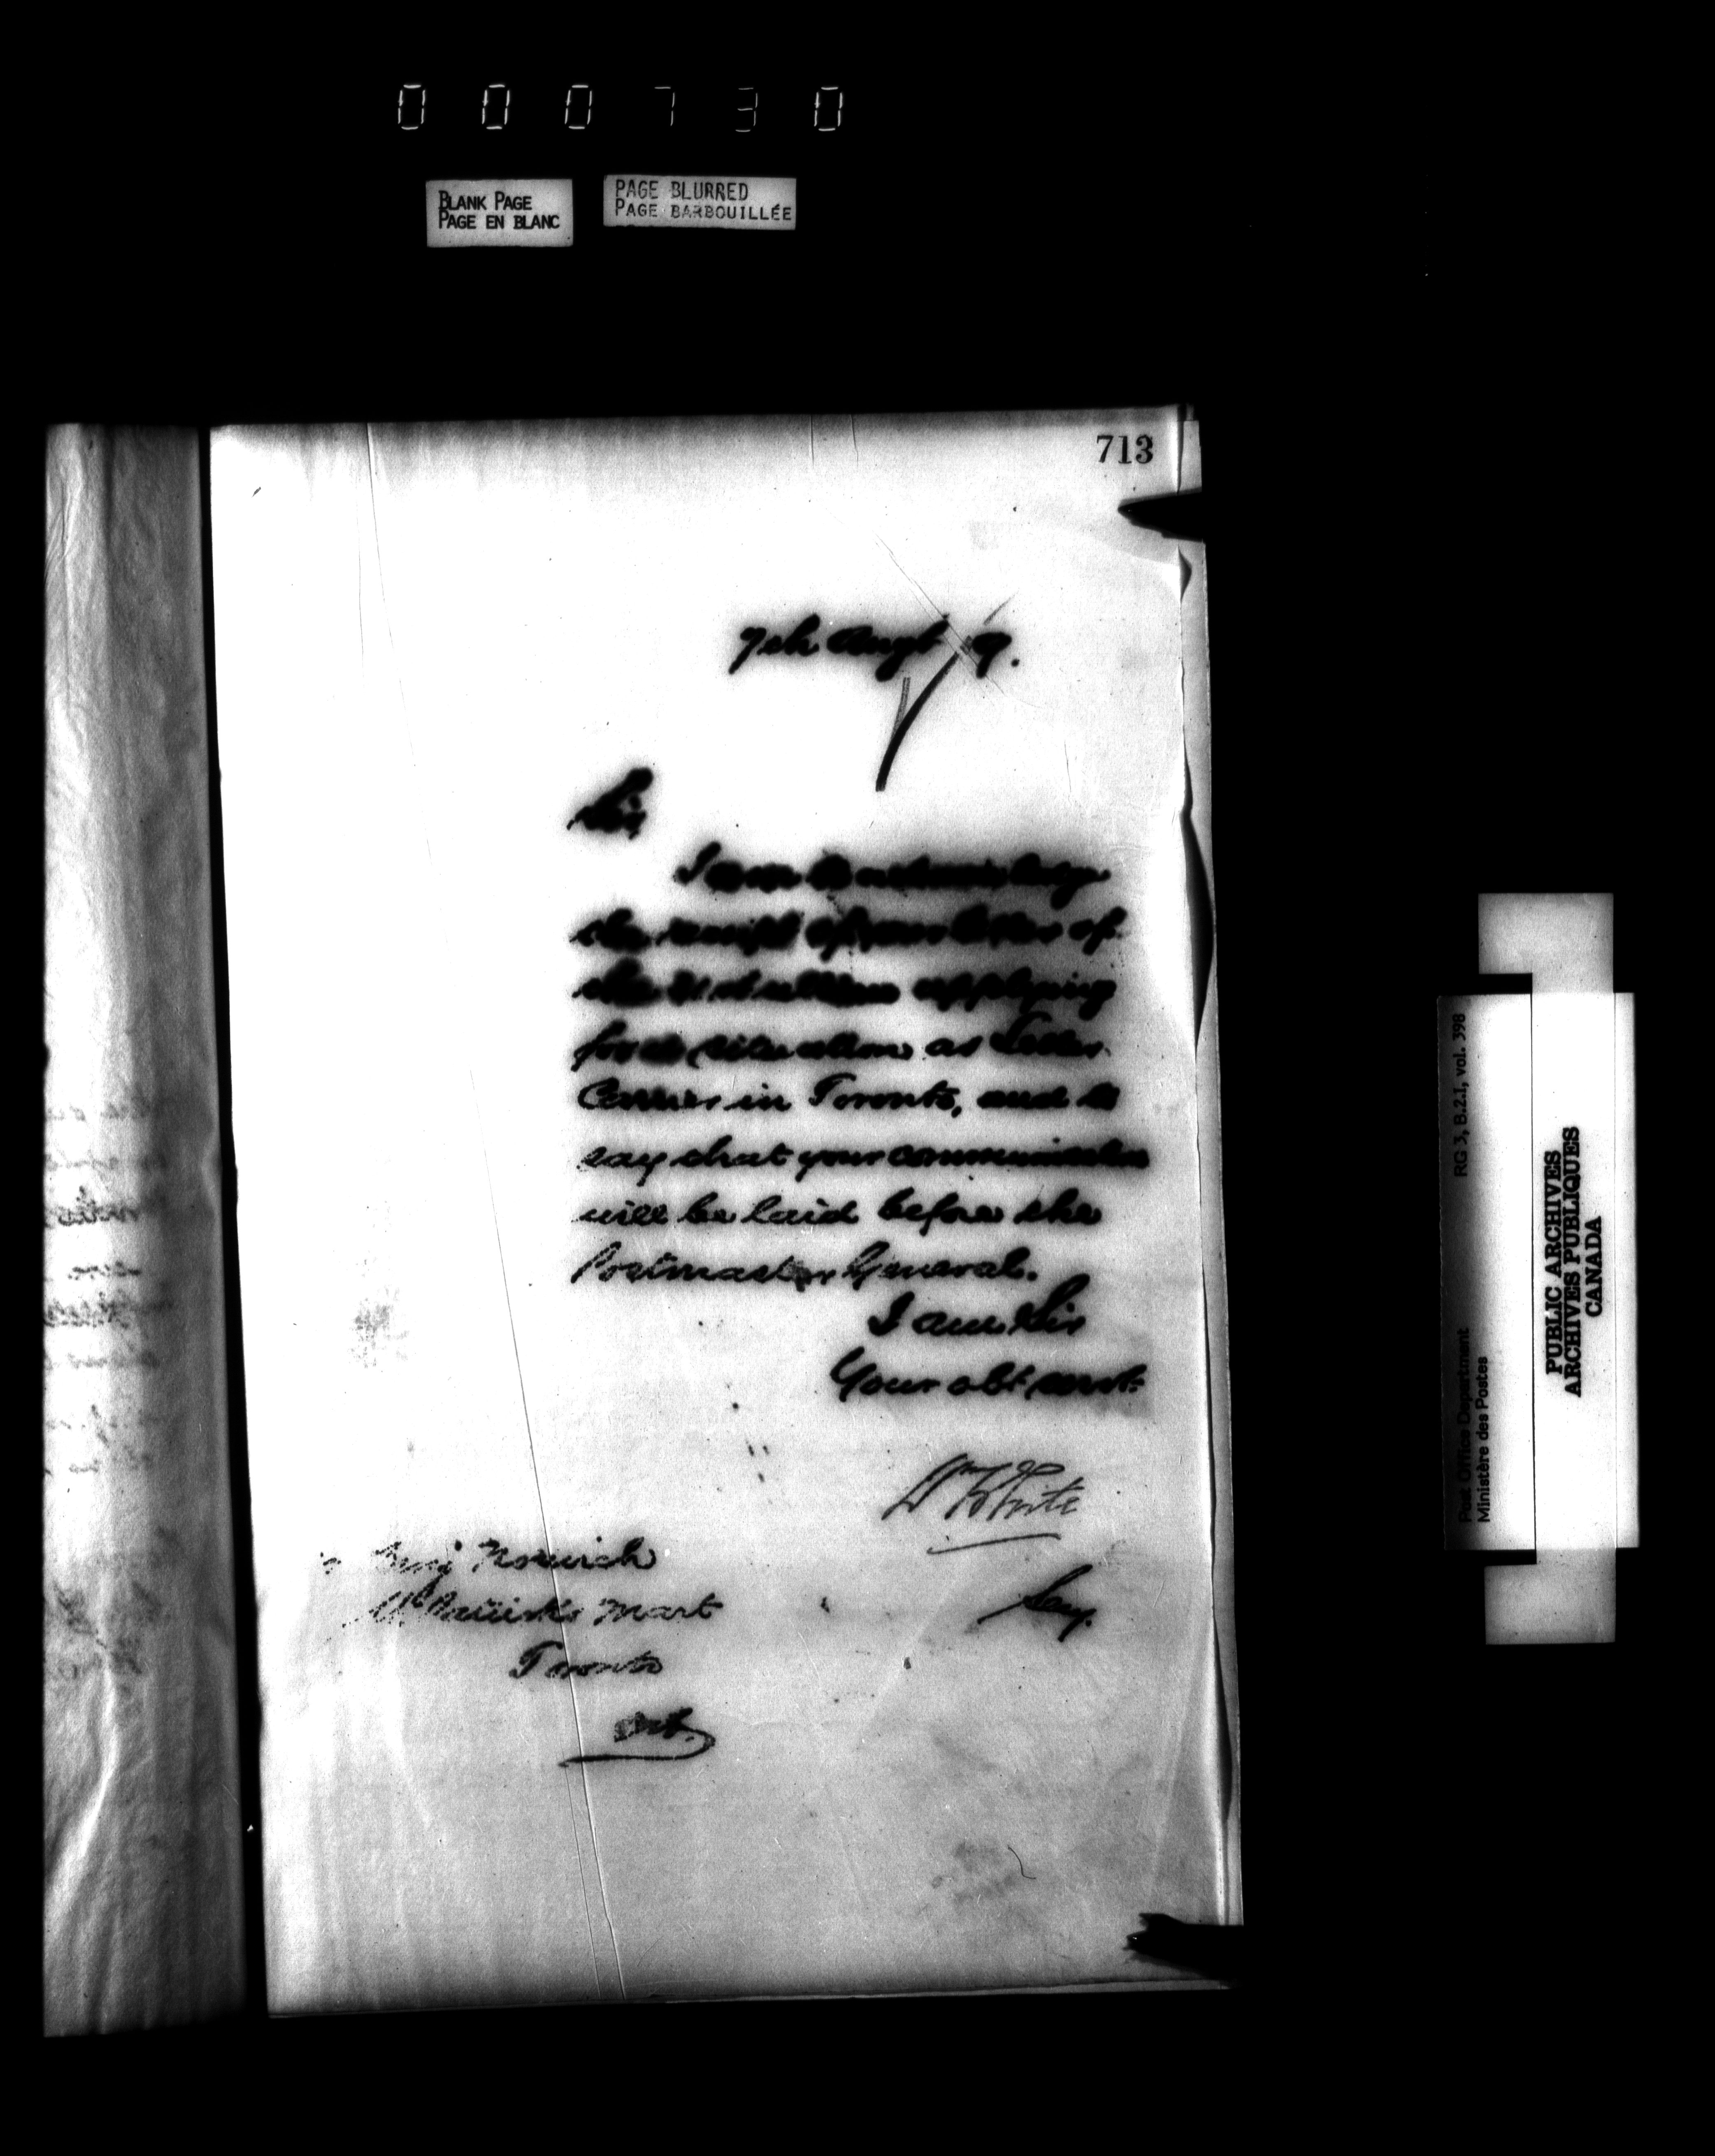 000730
BLANK PAGE
PAGE EN BLANC
PAGE BLURRED
PAGE BARBOUILLÉE
713
7th Augt 9.
Sir,
I am to acknowledge
the receipt of your letter of
the ultimo applying
for a situation as Letter
Carrier in Toronto, and to
say that your communication
will be laid before the
Postmaster General.
I am Sir
Your obt servt.
White
Secy.
Benj Norwich
Mart
Toronto
Ont.
RG 3, B.2.1, vol. 398
Post Office Department
Ministère des Postes
PUBLIC ARCHIVES
ARCHIVES PUBLIQUES
CANADA